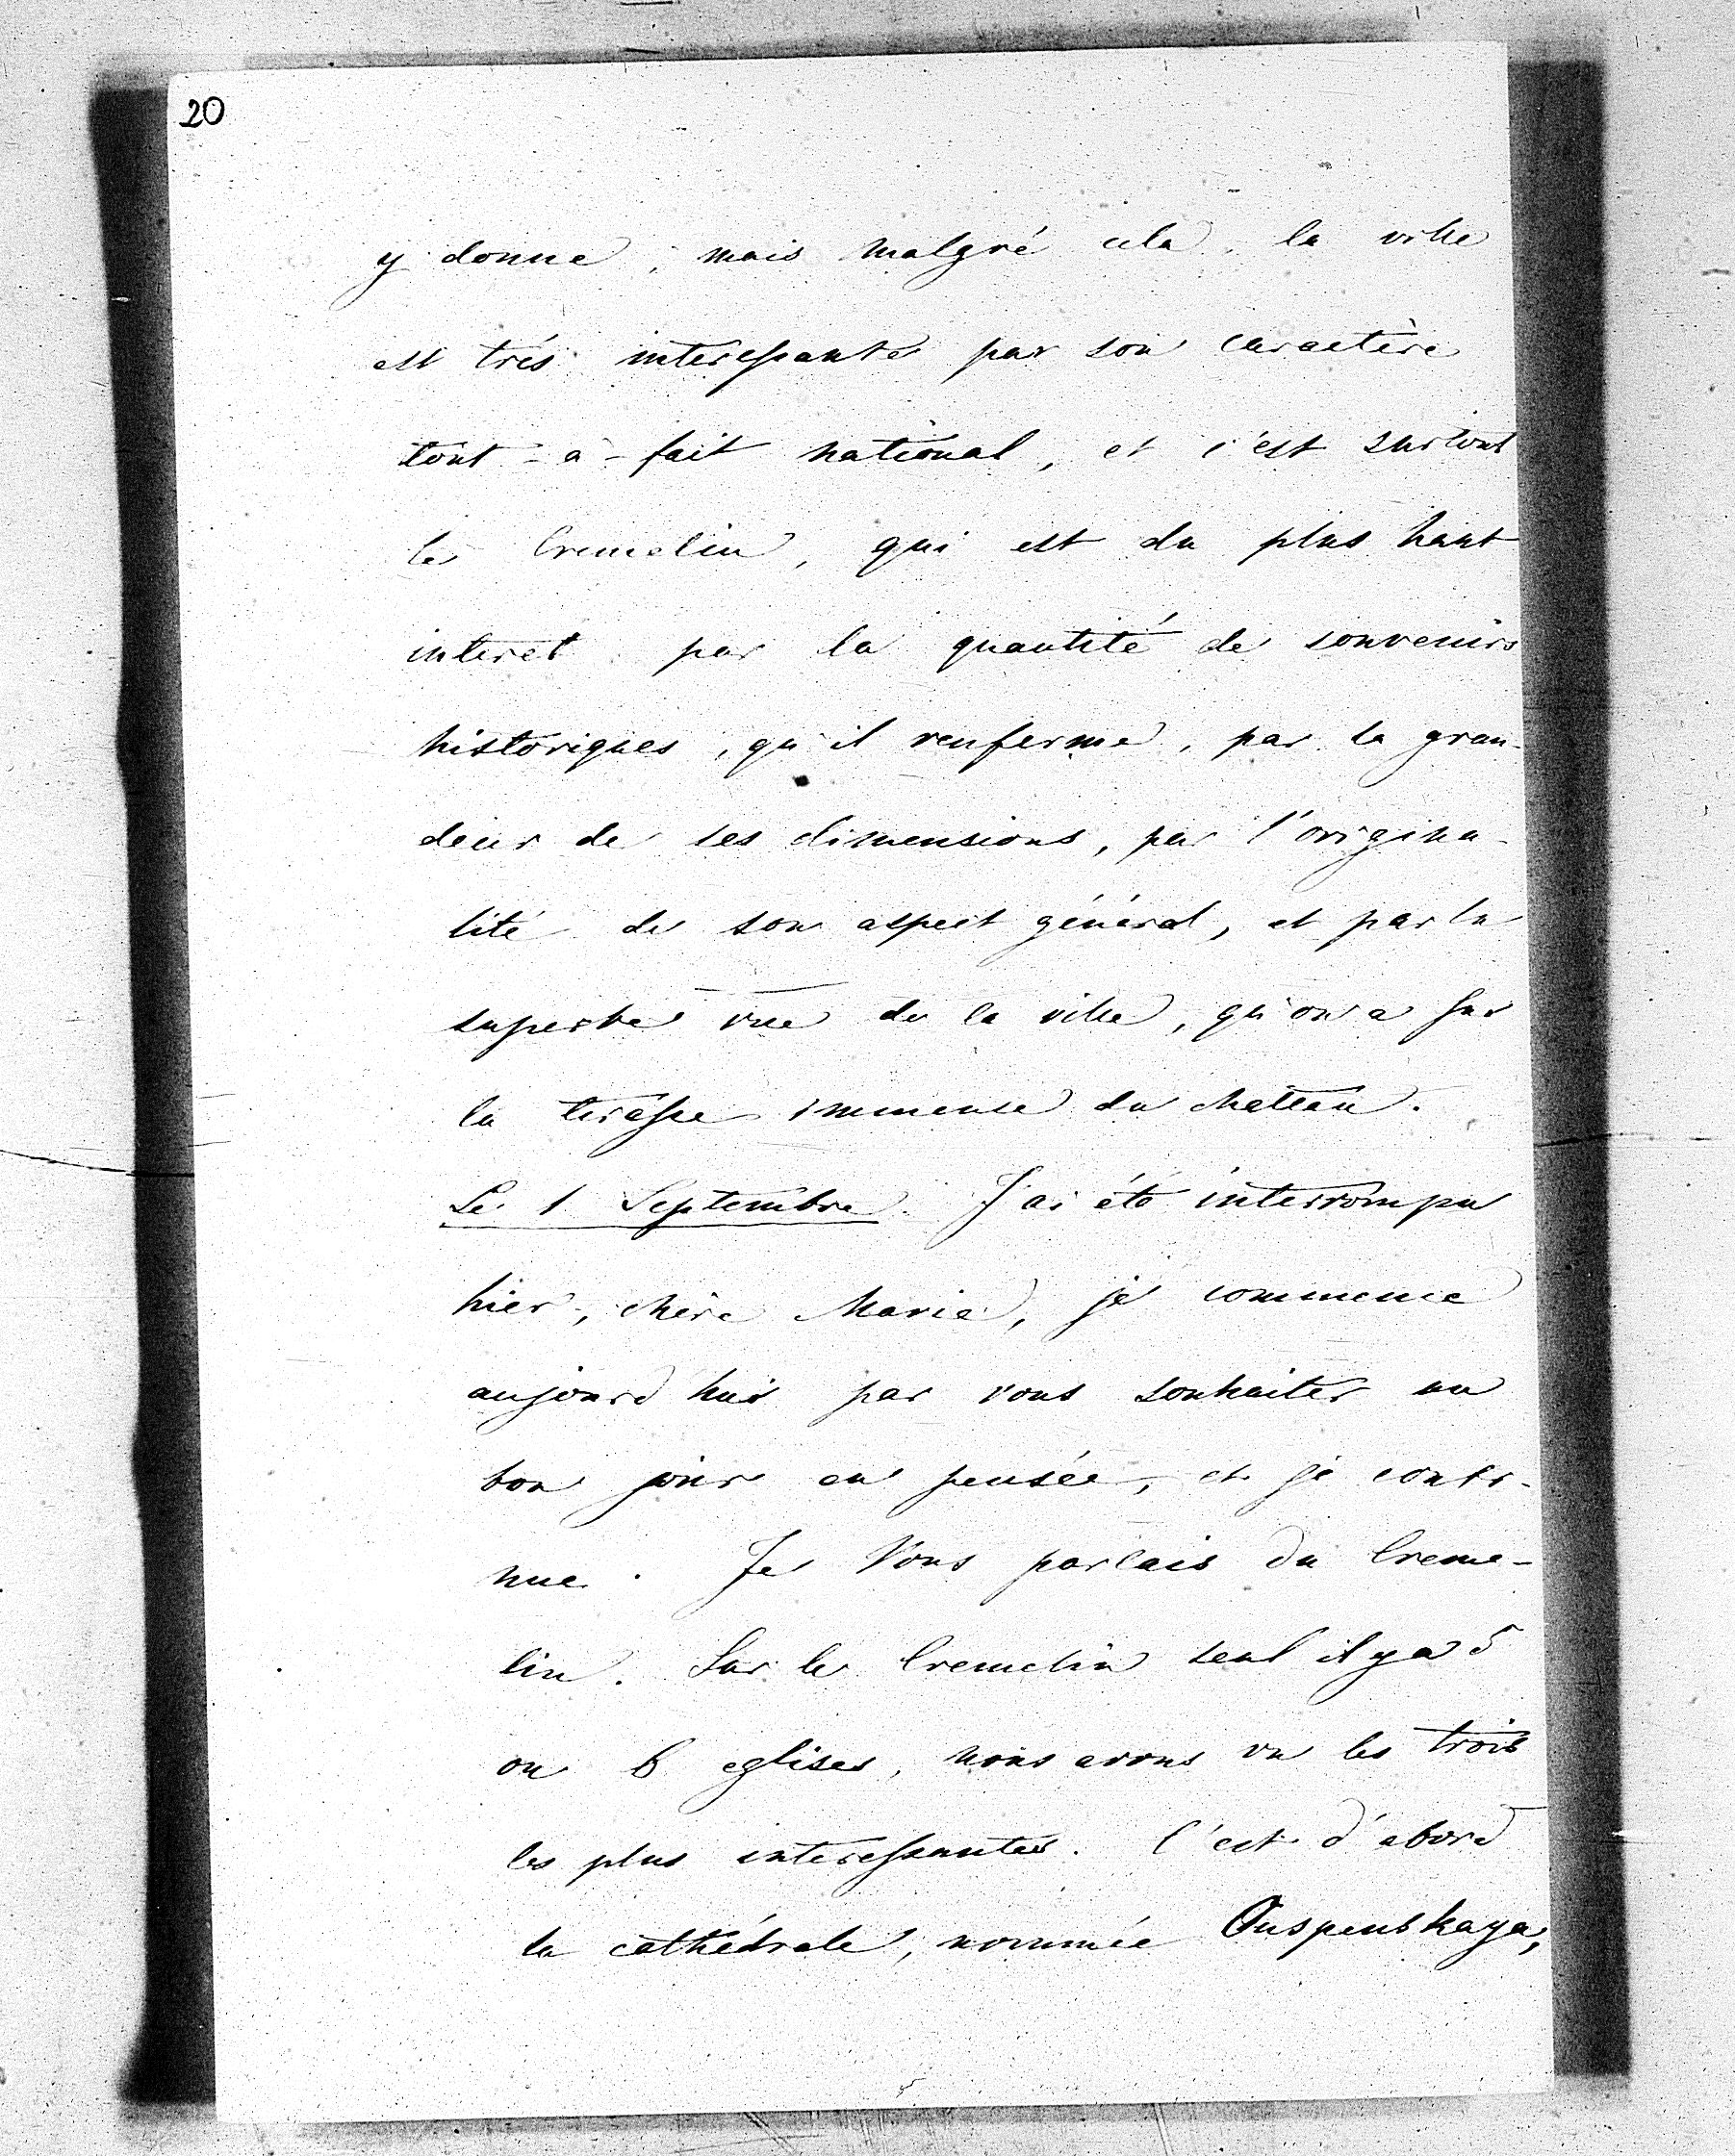 20
y donne, mais malgré cela, la ville
est trés interessante par son caractère
tout-à-fait national, et c'est surtout
le Cremelin, qui est du plus haut
interet par la quantité de souvenirs
historiques, qu'il renferme, par la gran-
deur de ses dimensions, par l'origina-
lité de son aspect général, et par la
superbe vue de la ville, qu'on a sur
la terasse immense du chateau.
Le 1 Septembre. J'ai été interrompu
hier, chère Marie, je commence
aujourd'hui par vous souhaiter un
bon jour en pensée, et je conti-
nue. Je Vous parlais du Creme-
lin. Sur le Cremelin seul il y a 5
ou 6 eglises, nous avons vu les trois
les plus interessantes. C'est d'abord
la cathédrale, nommée Ouspenskaya,